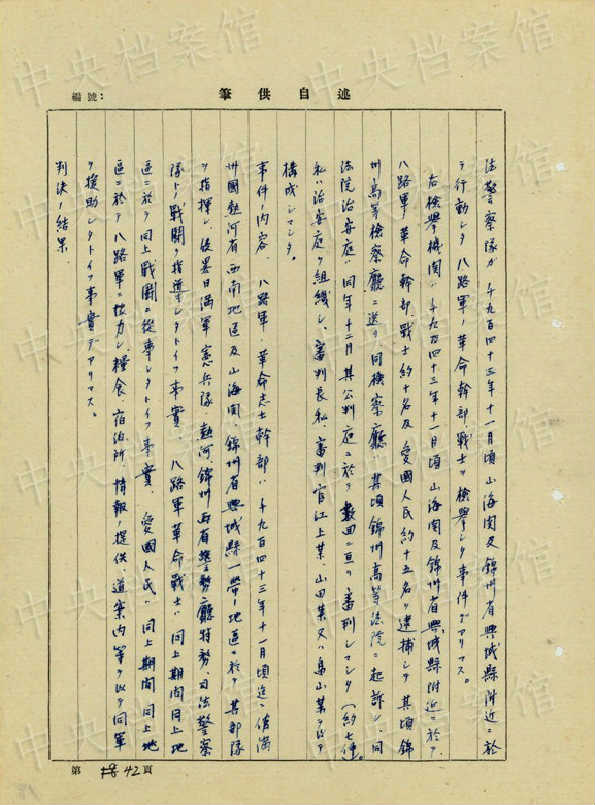 編號:
筆供自述
法警察隊ガ千九百四十三年十一月頃山海関及錦州省興城縣附近ニ於
テ行動シタ八路軍ノ革命幹部、戦士ヲ検挙シタ事件デアリマス。
右検挙機関ハ千九百四十三年十一月頃山海関及錦州省興城縣附近ニ於テ
八路軍ノ革命幹部、戦士約十名及愛國人民約十五名ヲ逮捕シテ其頃錦
州高等検察廳ニ送リ同検察廳ハ其頃錦州高等法院ニ起訴シ、同
法院治安庭ハ同年十二月其公判庭ニ於テ数回ニ亘リ審判シマシタ(約七件)。
私ハ治安庭ヲ組織シ、審判長私、審判官江上某、山田某又ハ畠山某ヲ以テ
構成シマシタ。
事件ノ内容、八路軍ノ革命志士幹部ハ千九百四十三年十一月頃迄ニ偽満
州國熱河省西南地區及山海関、錦州省興城縣一帯ノ地區ニ於テ其部隊
ヲ指揮シ、侵畧日満軍、憲兵隊、熱河錦州両省警務廳特務、司法警察
隊トノ戦闘ヲ指導シタトイフ事實、八路軍革命戦士ハ同上期間同上地
區ニ於テ同上戦闘ニ從事シタトイフ事實、愛國人民ハ同上期間同上地
區ニ於テ八路軍ニ協力シ、糧食、宿泊所、情報ノ提供、道案内等ヲ以テ同軍
ヲ援助シタトイフ事實デアリマス。
判決ノ結果
第 42頁
中央档案馆